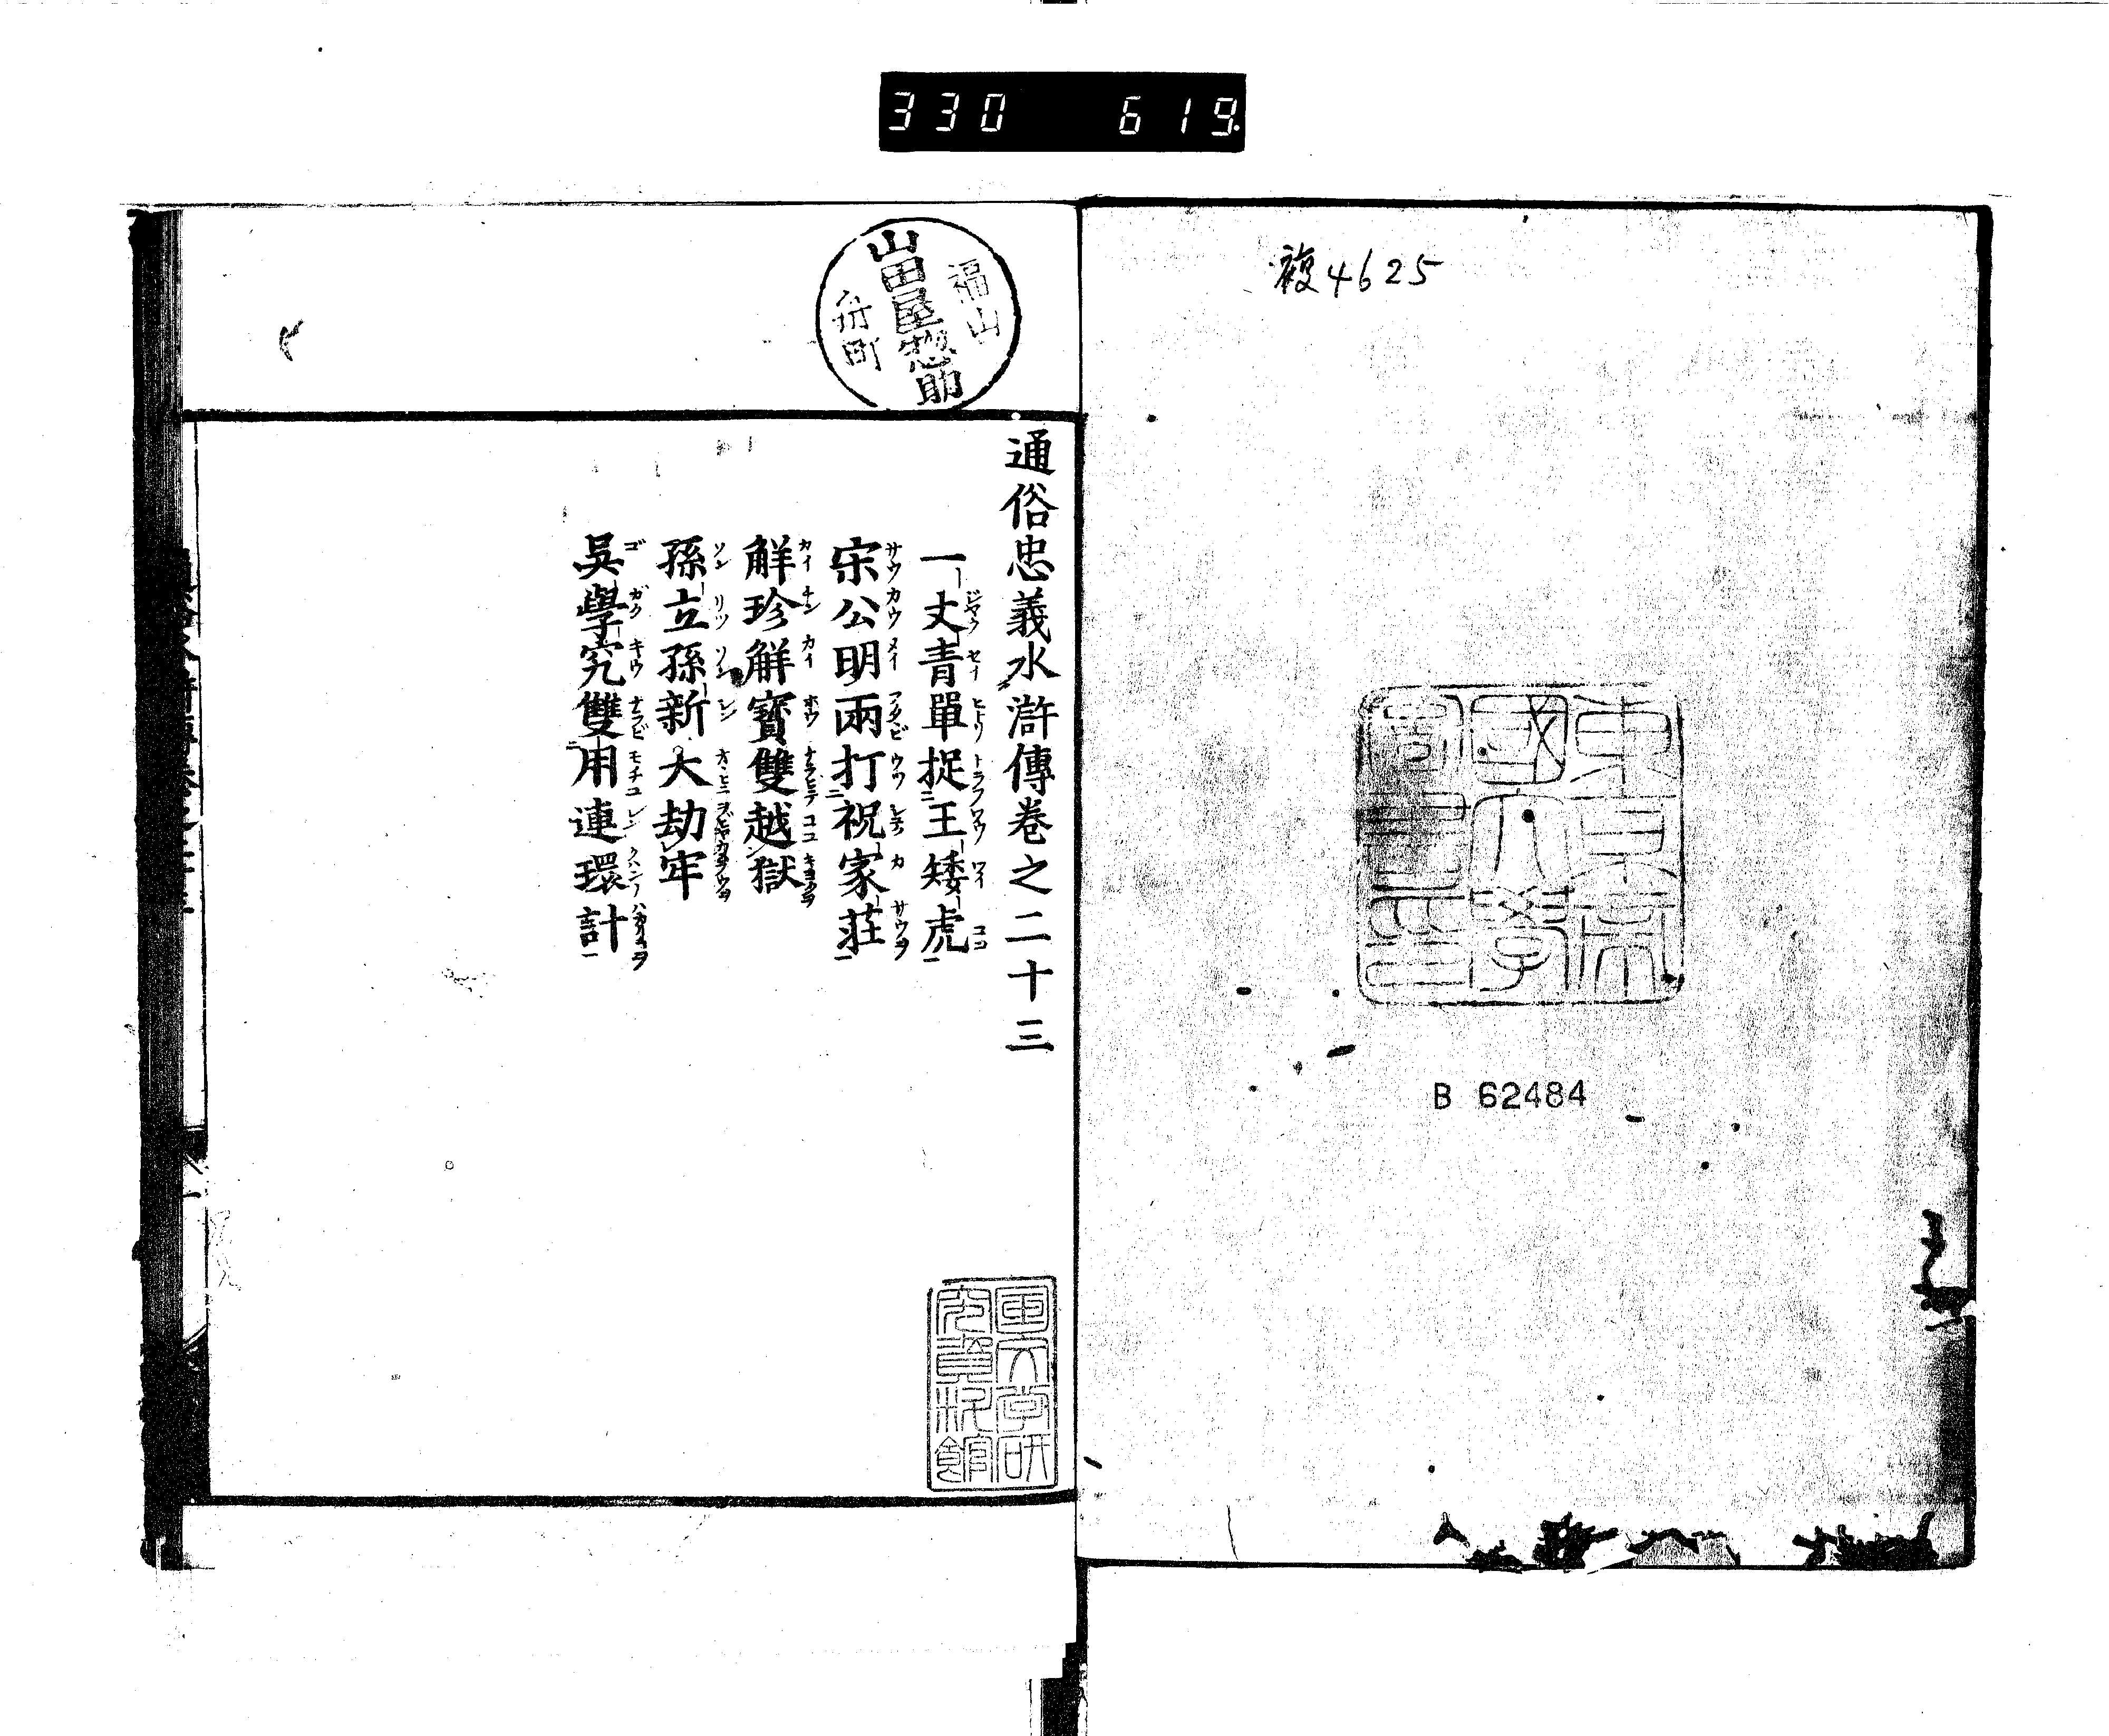 330 619.
複4625
東京
國大學
圖書印
B 62484
福山
山田屋惣助
舟町
通俗忠義水滸傳卷之二十三
一丈青單捉王矮虎
宋公明兩打祝家莊
解珍解寳雙越獄
孫立孫新大劫牢
吳學究雙用連環計
国文学研
究資料館